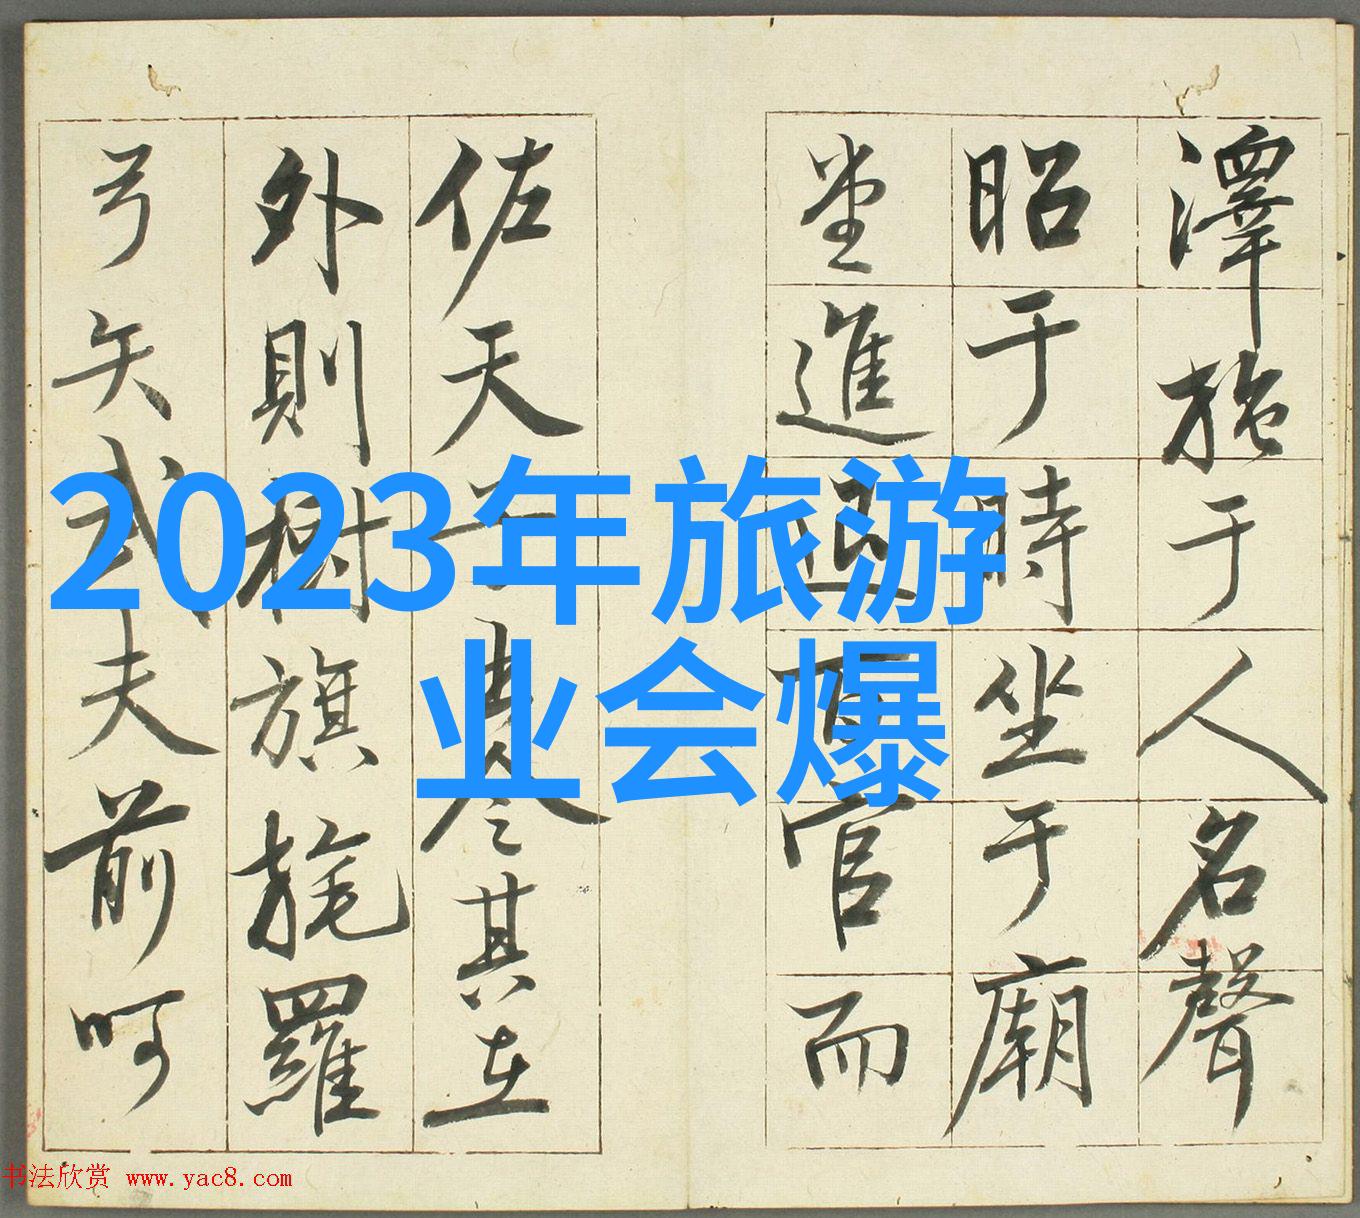 澤施于人名聲
昭于時坐于廟
堂進退百官而
佐天子出令其在
外則樹旗旄羅
弓矢武夫前呵
2023年旅游
业会爆
书法欣赏 www.yac8.com